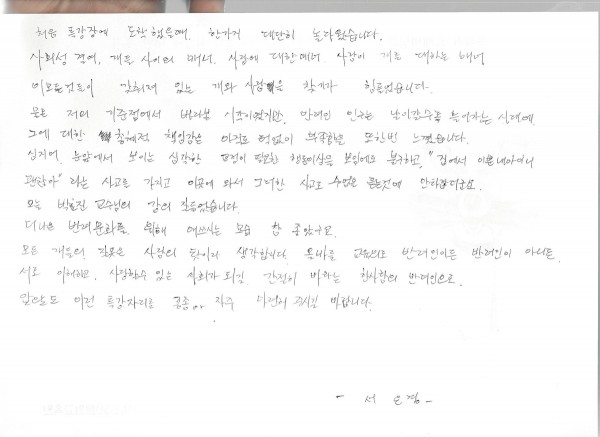 처음 특강장에 도착했을때, 한가지 대단히 놀라웠습니다.
사회성 결여, 개들 사이의 매너, 사람에 대한매너, 사람이 개를 대하는 매너
이모든것들이 갖춰져 있는 개와 사람을 찾기가 힘들었습니다.
물론 저의 기준점에서 바라본 시각이였지만, 반려인 인구는 날이갈수록 늘어가는 시대에
그에 대한 책임감은 아직도 턱없이 부족함을 또한번 느꼈습니다.
심지어, 눈앞에서 보이는 심각한 교정이 필요한 행동이상을 보임에도 불구하고, "집에서 이쁜내아이니
괜찮아" 라는 사고를 가지고 이곳에 와서 그러한 사고로 수업을 듣는것에 안타깝더군요.
오늘 교수님의 강의 잘들었습니다.
더나은 반려문화를 위해 애쓰시는 모습 참 좋았구요.
모든 개들의 잘못은 사람의 탓이라 생각합니다. 올바른 교육으로 반려인이든 반려인이 아니든
서로 이해하고, 사랑할수 있는 사회가 되길 간절히 바라는 한사람의 반려인으로
앞으로도 이런 특강자리를 종종 자주 마련해 주시길 바랍니다.
- 서 -